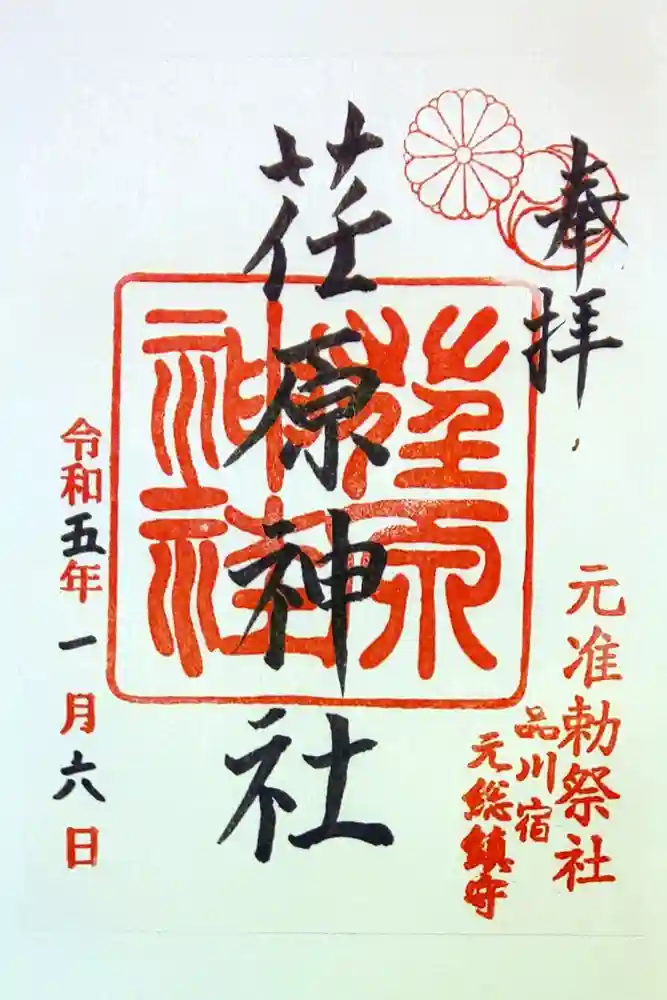 奉拝
元准勅祭社
品川宿
元総鎮守
荏原神社
令和五年一月六日